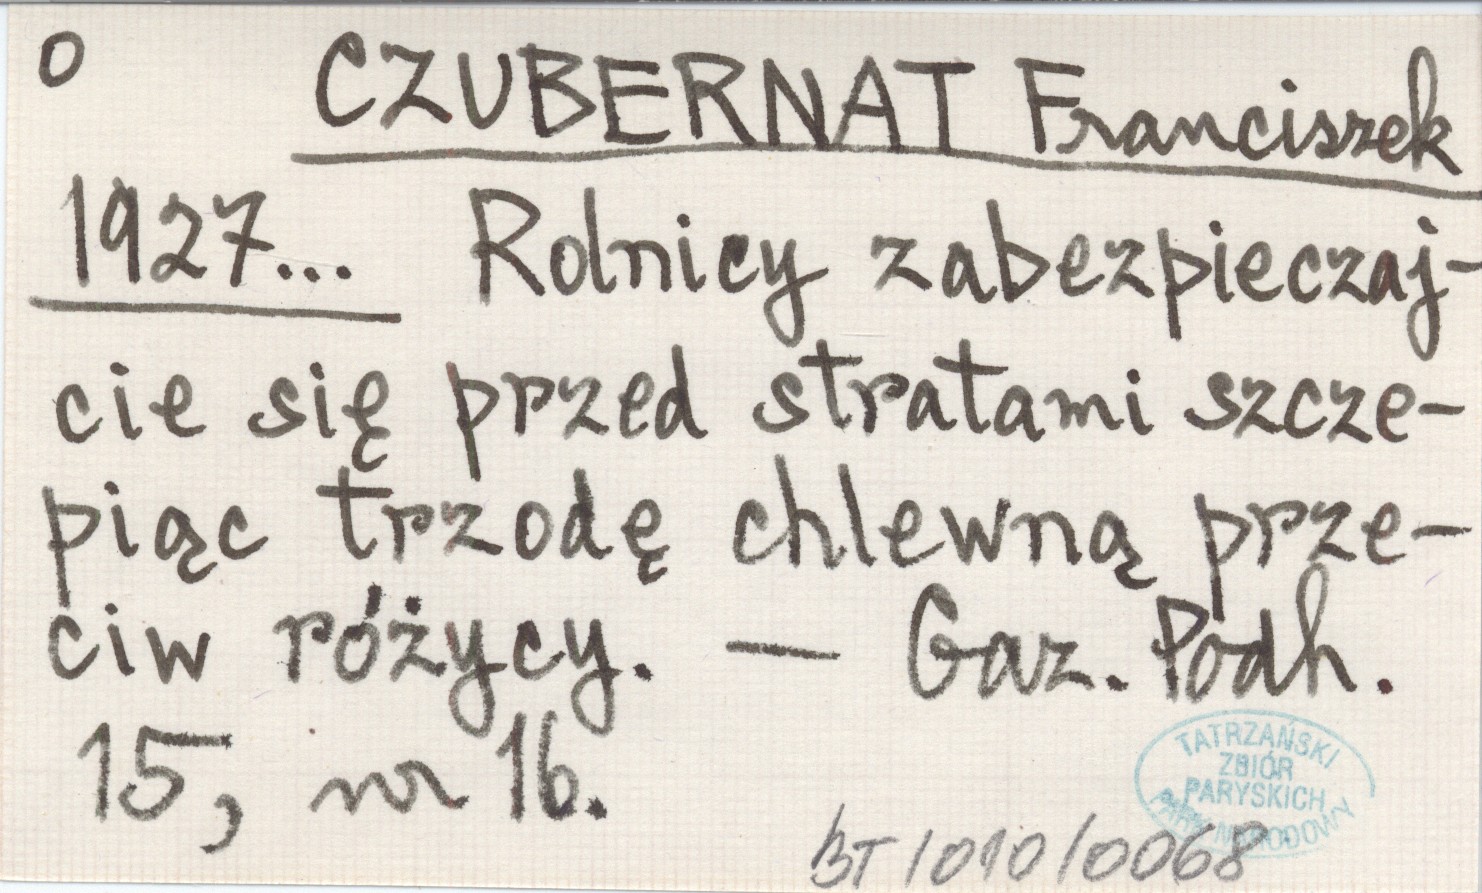 O CZUBERNAT Franciszek
1927... Rolnicy zabezpieczaj-
cie się przed stratami szcze-
piąc trzodę chlewną prze-
ciw różycy. — Gaz. Podh.
15, nr 16.
TATRZAŃSKI
ZBIÓR
PARYSKICH
PARK NARODOWY
BT/010/0068